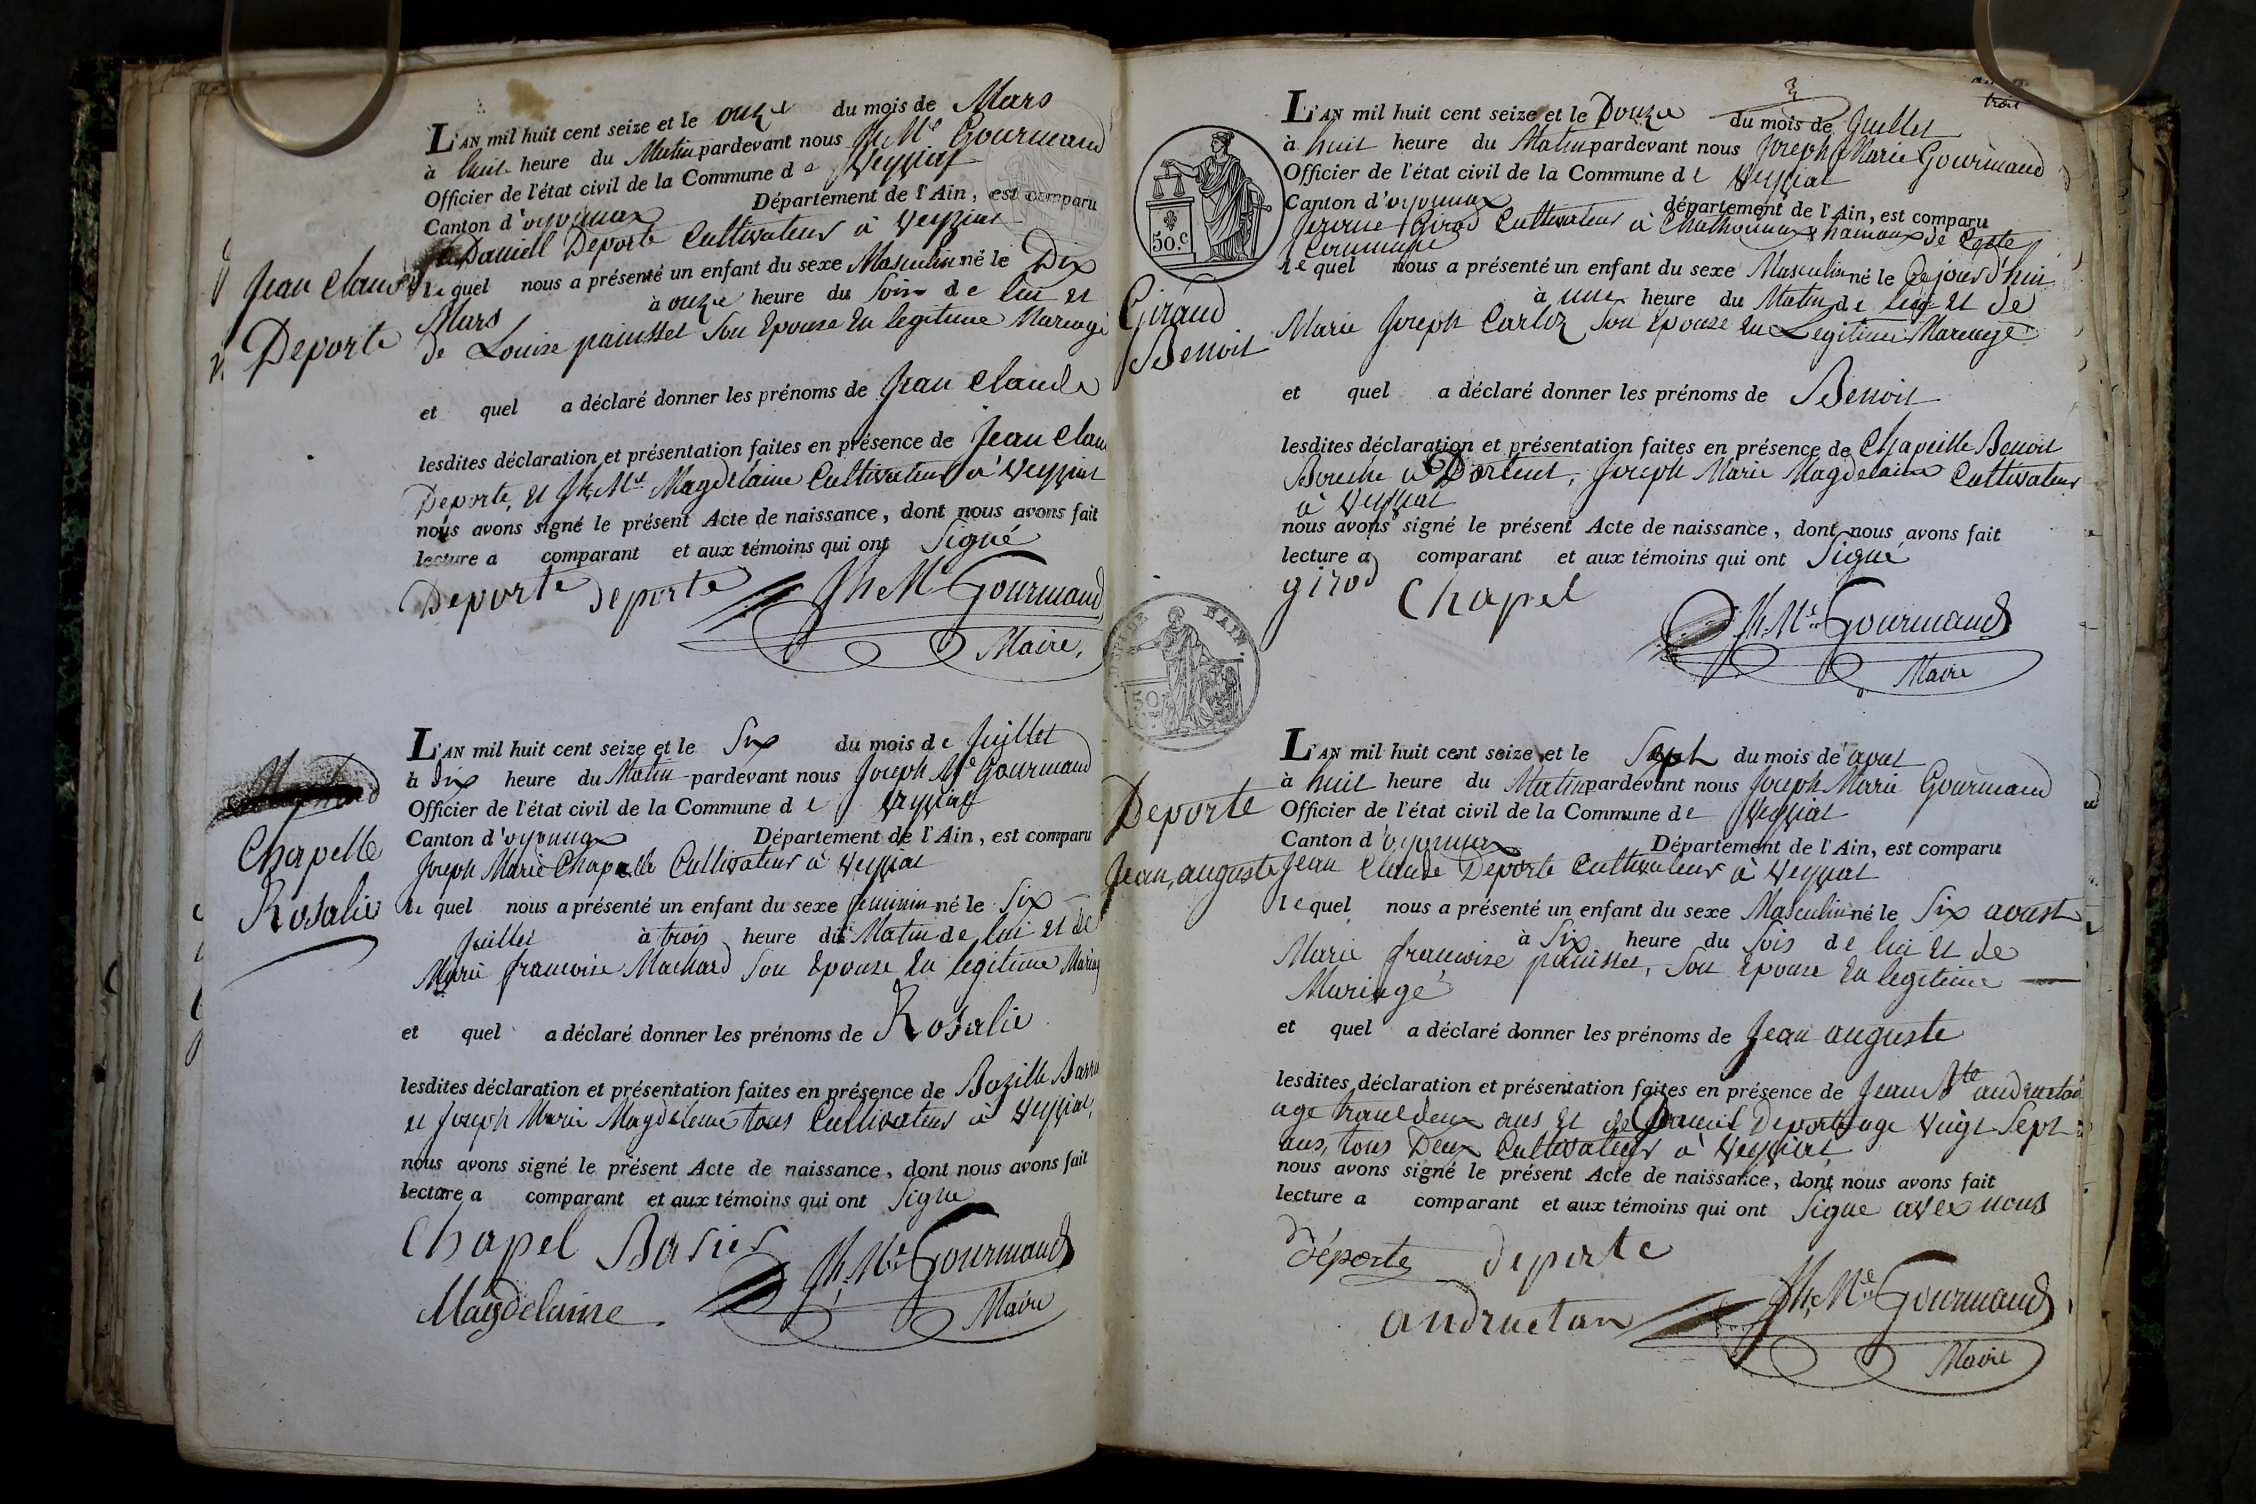 L'AN mil huit cent seize et le onze du mois de Mars
à huit heure du Matin pardevant nous Jh Me Gourmand
Officier de l'état civil de la Commune de Veyziat
Canton d'oyonnax Département de l'Ain, est comparu
Daniell Deporte Cultivateur à Veyziat
Jean Claude
Deporte
lequel nous a présenté un enfant du sexe Masculin né le Dix
Mars à onze heure du Soir de lui et
de Louise painsset Son Epouse En legitime Mariage
et quel a déclaré donner les prénoms de Jean Claude
lesdites déclaration et présentation faites en présence de Jean Clau
Deporte, et Jh Me Magdelaine Cultivateur à Veyziat
nous avons signé le présent Acte de naissance, dont nous avons fait
lecture a comparant et aux témoins qui ont Signé
Deporte deporte Jh Me Gourmand
Maire,
L'AN mil huit cent seize et le Six du mois de Juillet
à Dix heure du Matin pardevant nous Joseph Me Gourmand
Officier de l'état civil de la Commune de Veyziat
Canton d'oyonnax Département de l'Ain, est comparu
Joseph Marie Chapelle Cultivateur à Veyziat
Chapelle
Rosalie
lequel nous a présenté un enfant du sexe feminin né le Six
Juillet à trois heure du Matin de lui et de
Marie francoise Machard Son Epouse En legitime Mariag
et quel a déclaré donner les prénoms de Rosalie
lesdites déclaration et présentation faites en présence de Bazille
et Joseph Marie Magdeleine tous Cultivateurs à Veyziat,
nous avons signé le présent Acte de naissance, dont nous avons fait
lecture a comparant et aux témoins qui ont Signe
Chapel Jh Me Gourmand
Magdelaine Maire
3
trois
L'AN mil huit cent seize et le Douze du mois de Juillet
à huit heure du Matin pardevant nous Joseph Marie Gourmand
Officier de l'état civil de la Commune de Veyziat
Canton d'oyonnax département de l'Ain, est comparu
Girod Cultivateur à hamaux de Cette
Commune
50.c
Giraud
Benoit
lequel nous a présenté un enfant du sexe Masculin né le Cejourd'hui
à une heure du Matin de lui et de
Marie Joseph Carloz Son Epouse En Legitime Mariage
et quel a déclaré donner les prénoms de Benoit
lesdites déclaration et présentation faites en présence de Chapelle Benoit
à Dortent, Joseph Marie Magdelaine Cultivateur
à Veyziat
nous avons signé le présent Acte de naissance, dont nous avons fait
lecture a comparant et aux témoins qui ont Signé
girod Chapel
Jh Me Gourmand
Maire
50
L'AN mil huit cent seize et le Sept du mois de aout
à huit heure du Matin pardevant nous Joseph Marie Gourmand
Officier de l'état civil de la Commune de Veyziat
Canton d'oyonnax Département de l'Ain, est comparu
Jean Claude Deporte Cultivateur à Veyziat
Deporte
Jean, auguste
lequel nous a présenté un enfant du sexe Masculin né le Six aoust
à Six heure du Soir de lui et de
Marie francoise painsset, Son Epouse En legitime
Mariage
et quel a déclaré donner les prénoms de Jean auguste
lesdites déclaration et présentation faites en présence de Jean Bte andruetan
age trante deux ans et de Daniel Deporte age Vingt Sept
ans, tous Deux Cultivateurs à Veyziat
nous avons signé le présent Acte de naissance, dont nous avons fait
lecture a comparant et aux témoins qui ont Signe avex nous
déporte deporte
andruetan Jh Me Gourmand
Maire